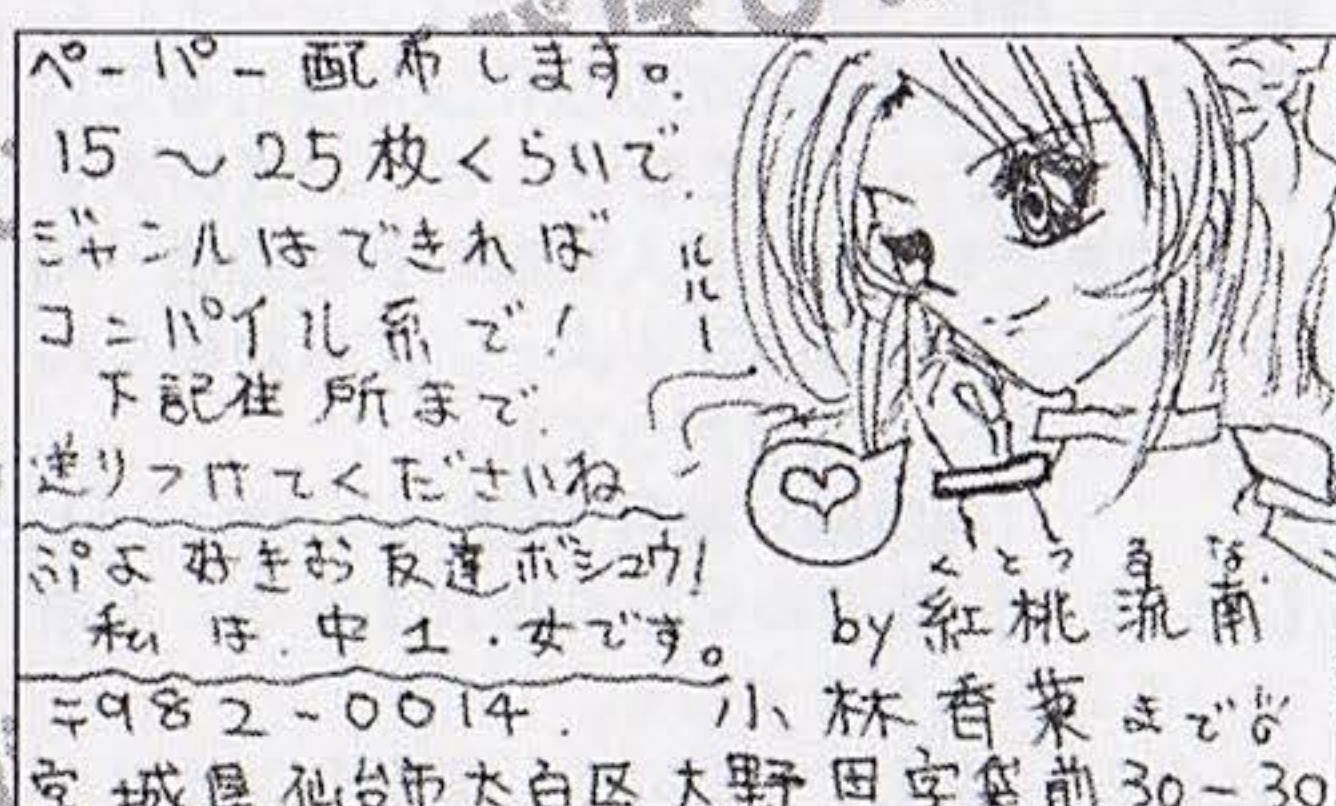 ペーパー配布します。
15〜25枚くらいで
ジャンルはできれば
コンパイル系で!
下記住所まで
送りつけてくださいね
ぷよ好きお友達ボシュウ!
私は中1・女です。
ルルー
くとう るな
by 紅桃流南
〒982-0014. 小林香菜まで
宮城県仙台市太白区大野田字袋前30-30